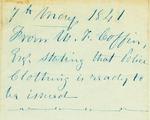 7th May, 1841
From W. F. Coffin,
Esqr stating that Police
Clothing is ready to
be issued